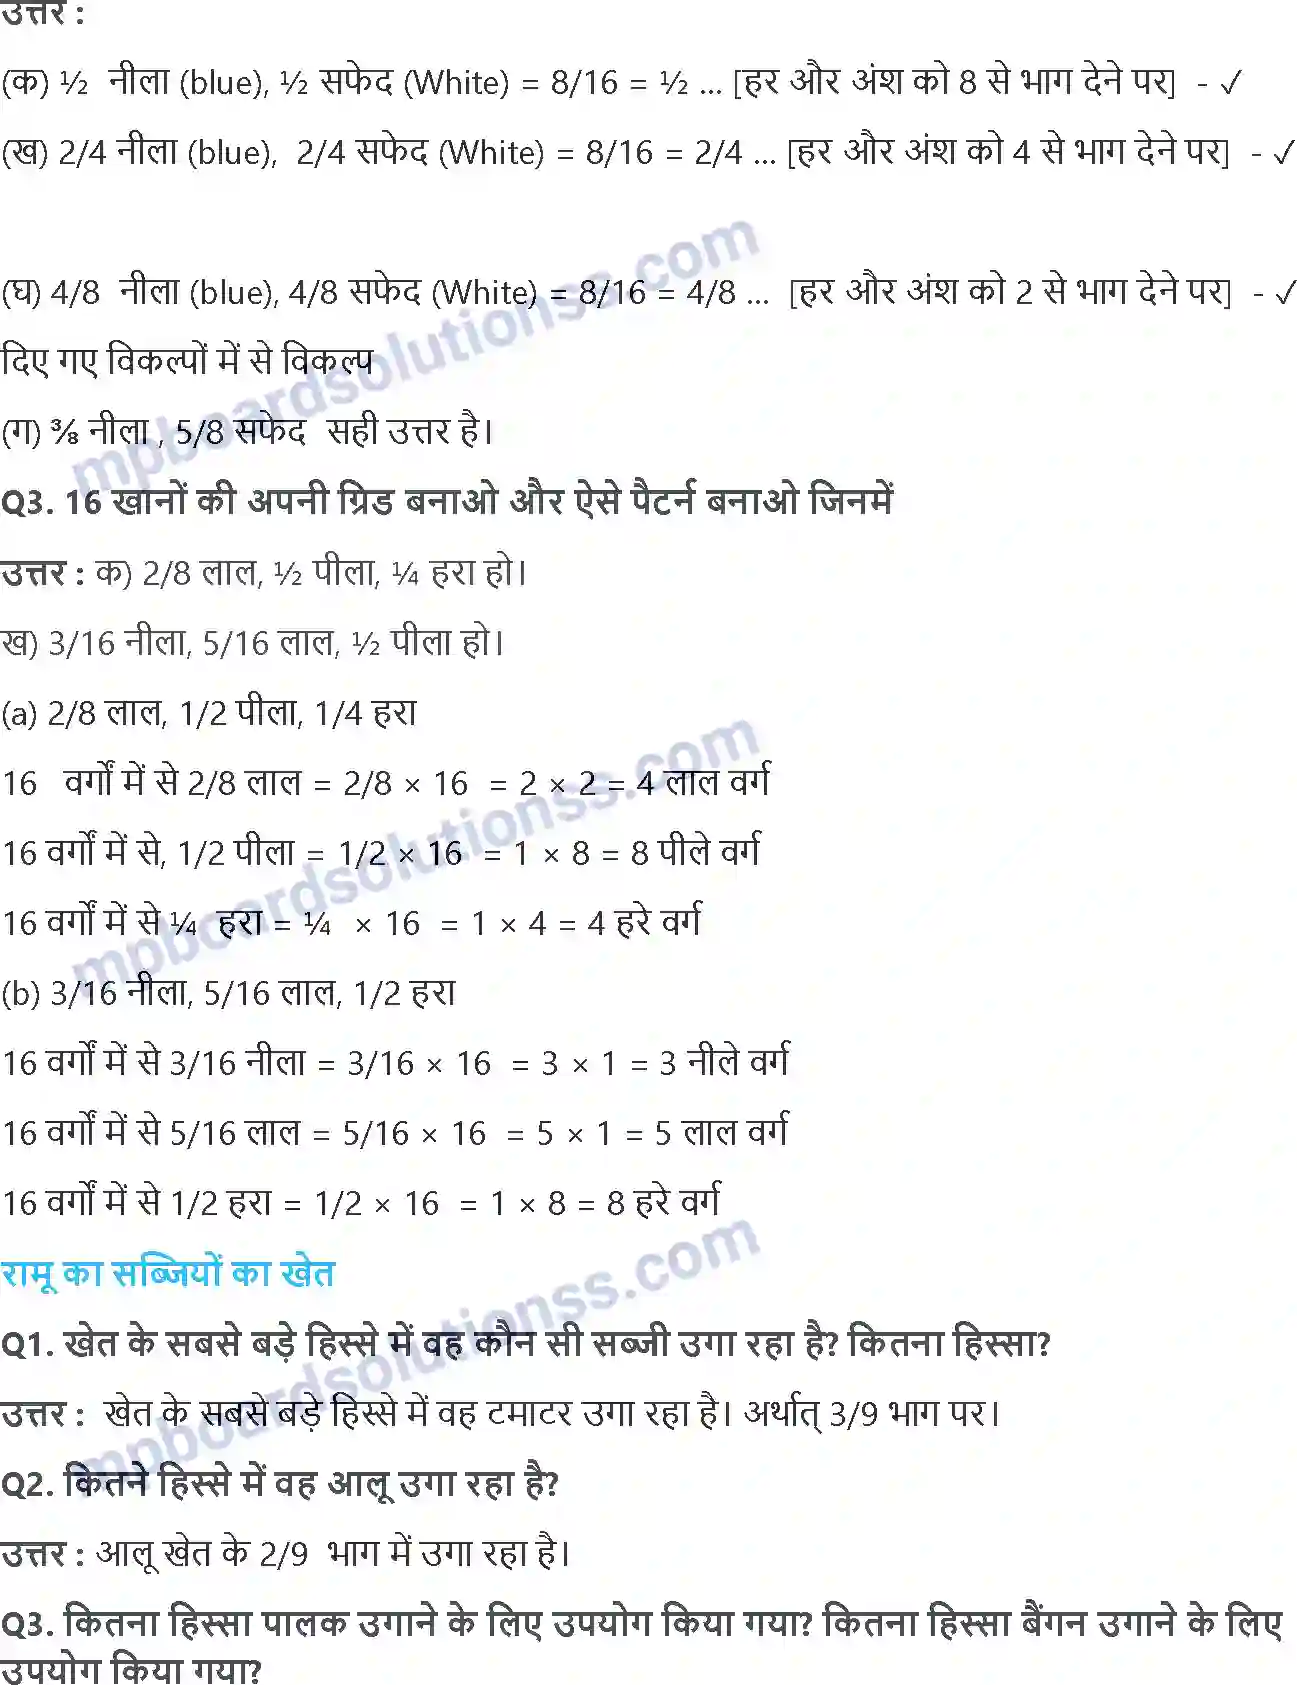 उत्तर :
(क) ½ नीला (blue), ½ सफेद (White) = 8/16 = ½ ... [हर और अंश को 8 से भाग देने पर] - ✓
(ख) 2/4 नीला (blue), 2/4 सफेद (White) = 8/16 = 2/4 ... [हर और अंश को 4 से भाग देने पर] - ✓
(घ) 4/8 नीला (blue), 4/8 सफेद (White) = 8/16 = 4/8 ... [हर और अंश को 2 से भाग देने पर] - ✓
mpboardsolutionss.com
दिए गए विकल्पों में से विकल्प
(ग) ⅜ नीला , 5/8 सफेद सही उत्तर है।
Q3. 16 खानों की अपनी ग्रिड बनाओ और ऐसे पैटर्न बनाओ जिनमें
उत्तर : क) 2/8 लाल, ½ पीला, ¼ हरा हो।
ख) 3/16 नीला, 5/16 लाल, ½ पीला हो।
(a) 2/8 लाल, 1/2 पीला, 1/4 हरा
16 वर्गों में से 2/8 लाल = 2/8 × 16 = 2 × 2 = 4 लाल वर्ग
mpboardsolutionss.com
16 वर्गों में से, 1/2 पीला = 1/2 × 16 = 1 × 8 = 8 पीले वर्ग
16 वर्गों में से ¼ हरा = ¼ × 16 = 1 × 4 = 4 हरे वर्ग
(b) 3/16 नीला, 5/16 लाल, 1/2 हरा
16 वर्गों में से 3/16 नीला = 3/16 × 16 = 3 × 1 = 3 नीले वर्ग
16 वर्गों में से 5/16 लाल = 5/16 × 16 = 5 × 1 = 5 लाल वर्ग
16 वर्गों में से 1/2 हरा = 1/2 × 16 = 1 × 8 = 8 हरे वर्ग
रामू का सब्जियों का खेत
mpboardsolutionss.com
Q1. खेत के सबसे बड़े हिस्से में वह कौन सी सब्जी उगा रहा है? कितना हिस्सा?
उत्तर : खेत के सबसे बड़े हिस्से में वह टमाटर उगा रहा है। अर्थात् 3/9 भाग पर।
Q2. कितने हिस्से में वह आलू उगा रहा है?
उत्तर : आलू खेत के 2/9 भाग में उगा रहा है।
Q3. कितना हिस्सा पालक उगाने के लिए उपयोग किया गया? कितना हिस्सा बैंगन उगाने के लिए
उपयोग किया गया?